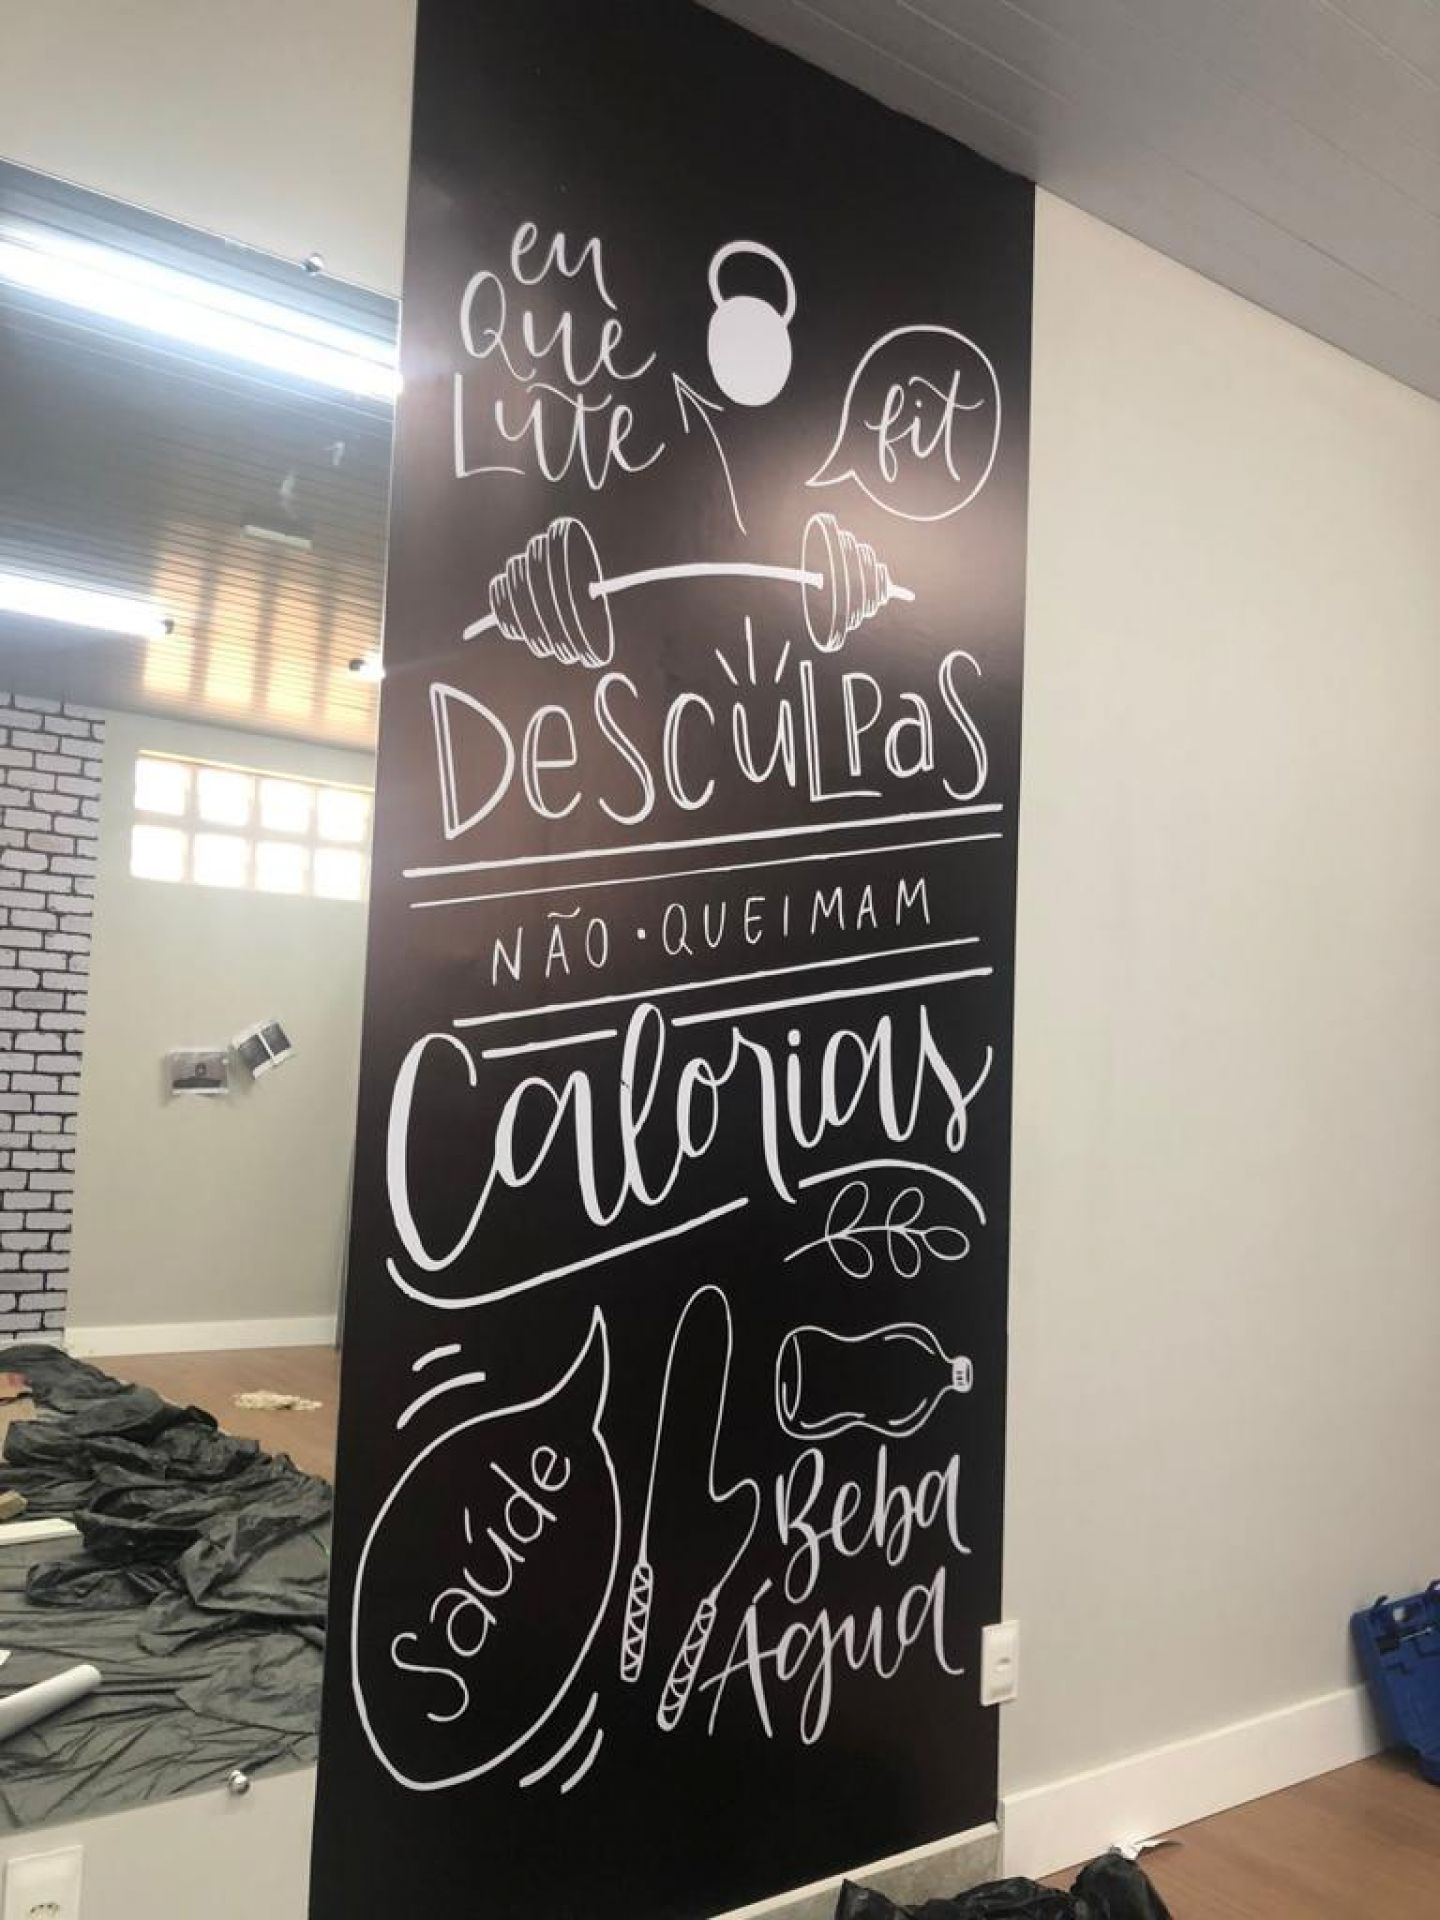 eu
Que
Lute
fit
DesculPas
NÃO • QUEIMAM
Calorias
Saúde
Beba
Água